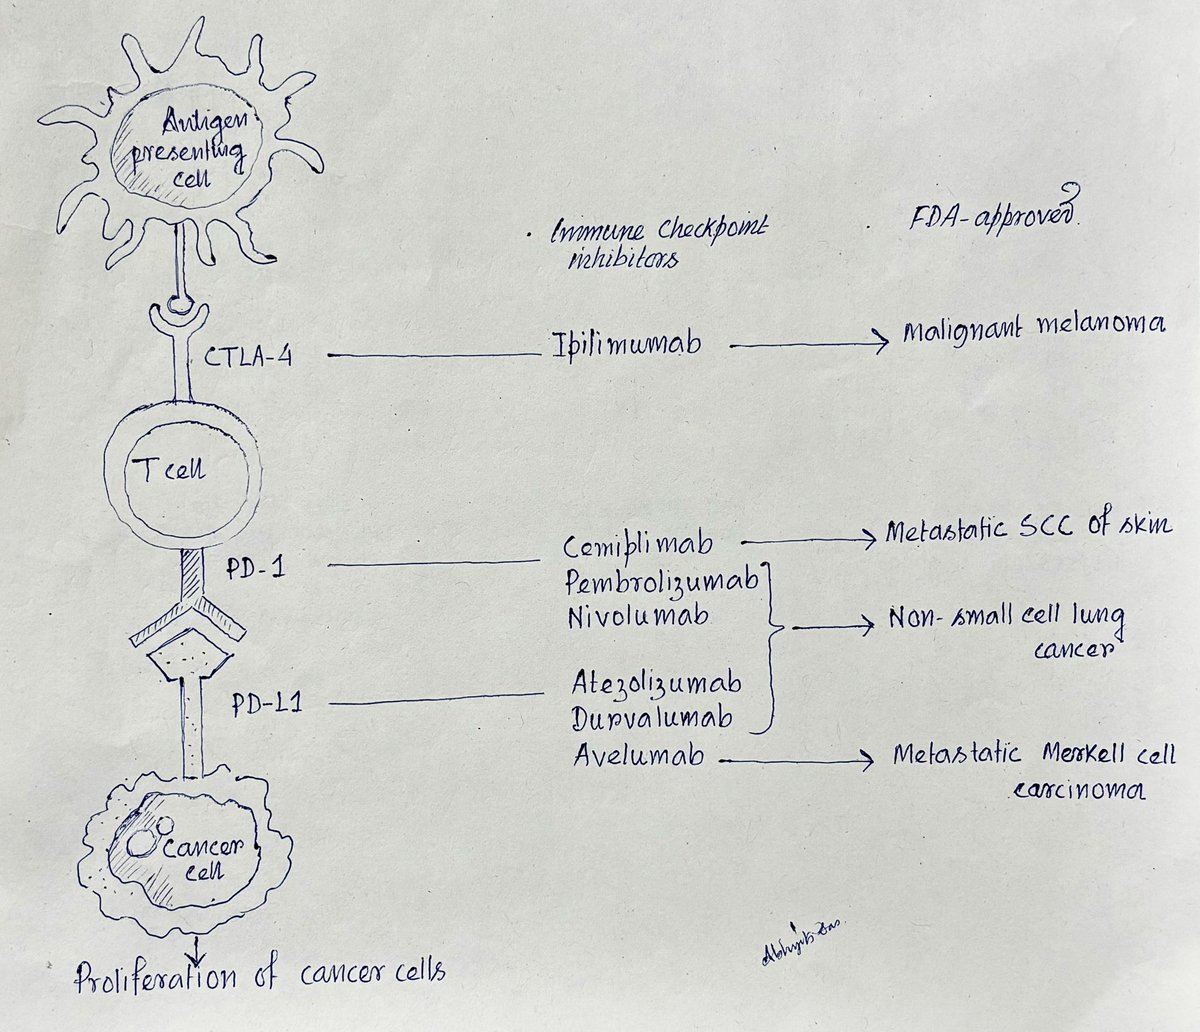 Antigen
presenting
cell
Immune checkpoint
inhibitors
FDA-approved
CTLA-4
Ipilimumab
Malignant melanoma
T cell
PD-1
Cemiplimab
Metastatic SCC of skin
Pembrolizumab
Nivolumab
Non-small cell lung
cancer
PD-L1
Atezolizumab
Durvalumab
Avelumab
Metastatic Merkell cell
carcinoma
Cancer
cell
Proliferation of cancer cells
Abhijit Das.